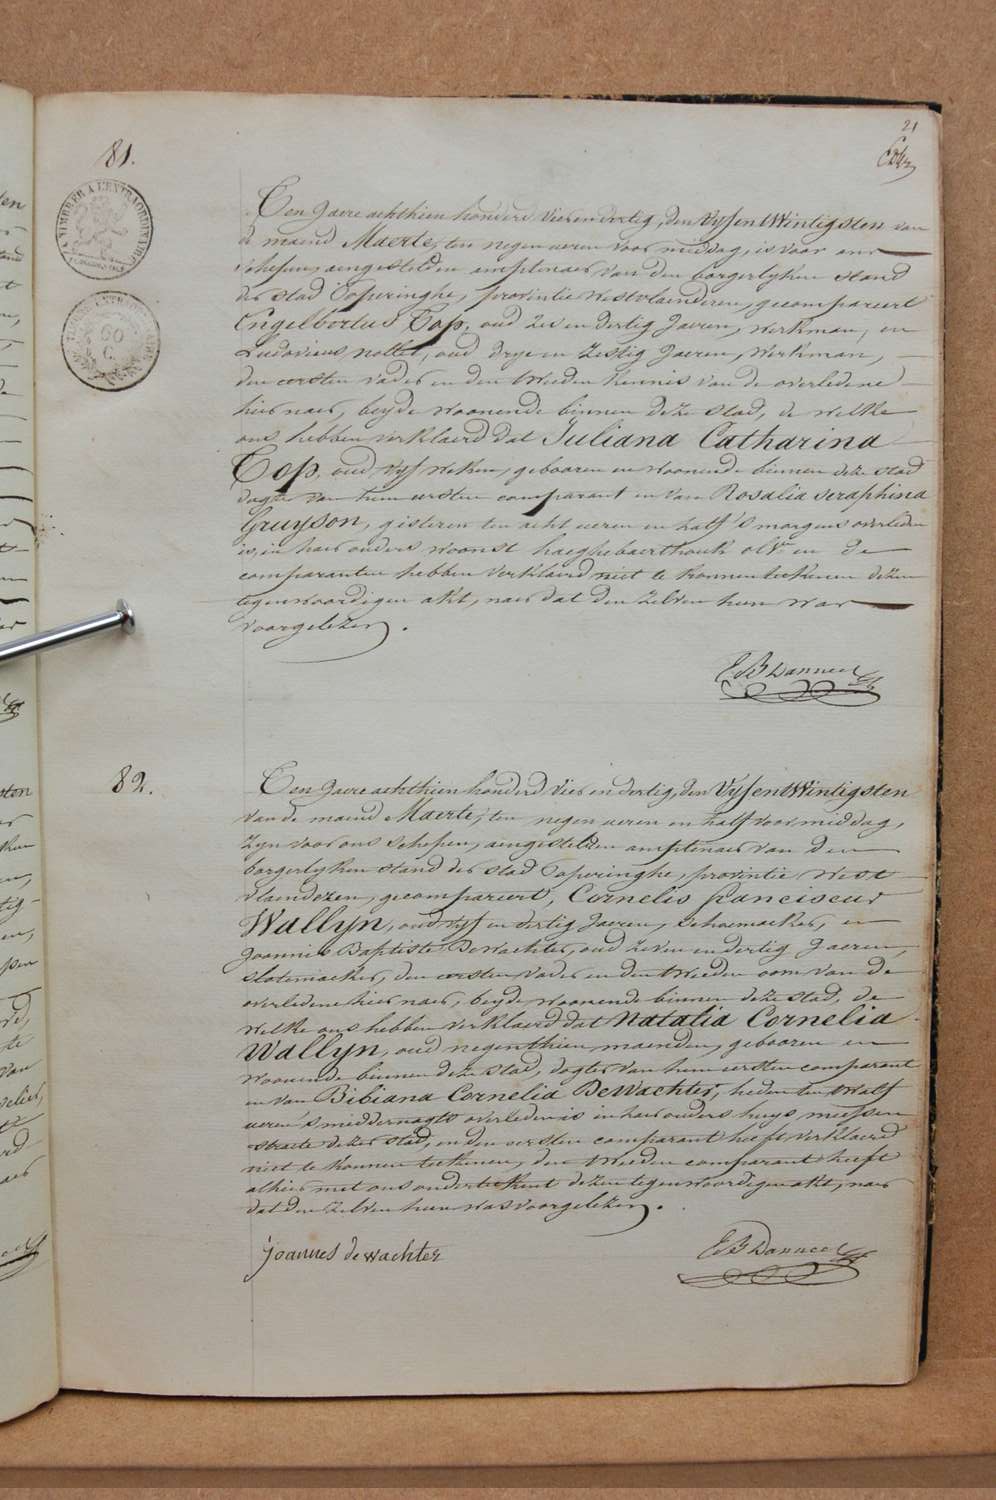 21
81.
Ten Jaere achthien honderd vier en dertig, den vyf en twintigsten van
de maend Maerte, ten negen ueren voor middag, is voor ons
schepen, aengestelden amptenaer van den borgerlyken stand
der stad Poperinghe, provintie Westvlaenderen, gecompareert
Engelbertus Top, oud zes en dertig Jaeren, werkman, en
Ludovicus nollet, oud drye en zestig Jaeren, werkman,
den eersten vader en den tweeden kennis van de overledene
hier naer, beyde woonende binnen deze stad, de welke
ons hebben verklaerd dat Juliana Catharina
Top, oud vyf weken, gebooren en woonende binnen deze stad
dogter van hem eersten comparant en van Rosalia seraphina
Gruyson, gisteren ten acht ueren en half 's morgens overleden
is, in haer ouders woonst haeghebaerthouk en de
comparanten hebben verklaerd niet te konnen teekenen dezen
tegenwoordigen akt, naer dat den zelven hun was
voorgelezen.
E B Danneel
82.
Ten Jaere achthien honderd vier en dertig, den vyf en twintigsten
van de maend Maerte, ten negen ueren en half voor middag,
zyn voor ons schepen, aengestelden amptenaer van den
borgerlyken stand der stad Poperinghe, provintie West
vlaenderen, gecompareert, Cornelis franciscus
Wallyn, oud vyf en dertig Jaeren, schoemaeker, en
Joannes Baptiste DeWachter, oud zeven en dertig Jaeren,
slotemaeker, den eersten vader en den tweeden oom van de
overledene hier naer, beyde woonende binnen deze stad, de
welke ons hebben verklaerd dat Natalia Cornelia
Wallyn, oud negenthien maenden, gebooren en
woonende binnen deze stad, dogter van hem eersten comparant
en van Bibiana Cornelia DeWachter, heden ten twalf
ueren 's middernagts overleden is in haer ouders huys meessen
straete dezer stad, en den eersten comparant heeft verklaerd
niet te konnen teekenen, den tweeden comparant heeft
alhier met ons onderteekent dezen tegenwoordigen akt, naer
dat den zelven hun was voorgelezen.
joannes de wachter
E B Danneel